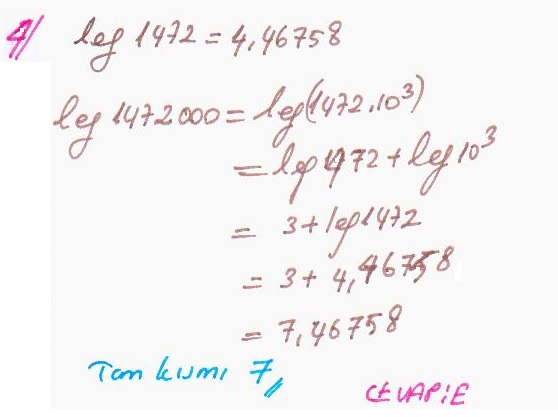 4/ log 1472 = 4,46758
log 1472000 = log(1472.10³)
= log 1472 + log 10³
= 3 + log 1472
= 3 + 4,46758
= 7,46758
Tam kısmı 7//
CEVAP:E